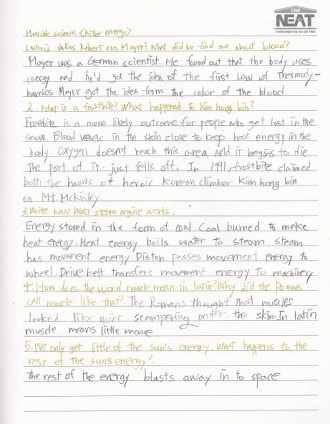 THE
NEAT
Horrible science <Killer energy>
1. who's Julius Robert von Mayer? What did he find out about blood?
Mayer was a German scientist. He found out that the body uses
energy and he'd got the idea of the first law of Thermody-
namics Mayer got the idea from the color of the blood
2. What is a frostbite? What happened to Kim hong bin?
Frostbite is a more likely outcome for people who get lost in the
snow. Blood vessel in the skin close to keep heat energy in the
body oxygen doesn't reach this area and it begins to die
The part of it just fells off. In 1991, frostbite claimed
both the hands of heroic Korean climber Kim hong bin
on Mt. McKinley
3. Write how Watt steam engine works.
Energy stored in the form of coal. Coal burned to make
heat energy. Heat energy boils water to steam steam
has movement energy Piston passes movement energy to
wheel Drive belt transfers movement energy to machinery
4. How does the word muscle mean in latin? Why did the Romans
call muscle like that? The Romans thought that muscles
looked like mice scampering under the skin In latin
muscle means little mouse
5. We only get little of the sun's energy. what happens to the
rest of the sun's energy?
the rest of the energy blasts away in to space